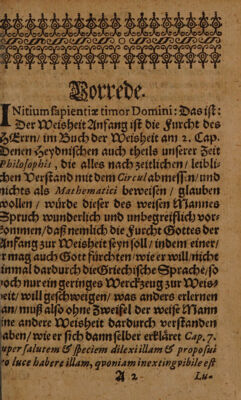 Vorrede.
INitium sapientiæ timor Domini: Das ist:
Der Weisheit Anfang ist die Furcht des
HErrn/ im Buch der Weisheit am 2. Cap.
Denen Heydnischen auch theils unserer Zeit
Philosophis, die alles nach zeitlichen/ leibli-
chen Verstand mit dem Circul abmessen/ und
nichts als Mathematici beweisen/ glauben
wollen/ würde dieser des weisen Mannes
Spruch wunderlich und unbegreiflich vor-
kommen/ daß nemlich die Furcht Gottes der
Anfang zur Weisheit seyn soll/ indem einer/
er mag auch Gott fürchten/ wie er will/ nicht
einmal dardurch die Griechische Sprache/ so
doch nur ein geringes Werckzeug zur Weis-
heit/ will geschweigen/ was anders erlernen
kan/ muß also ohne Zweifel der weise Mann
eine andere Weisheit dardurch verstanden
haben/ wie er sich dann selber erkläret Cap. 7.
super salutem & speciem dilexi illam & proposui
pro luce habere illam, quoniam inextingvibile est
A 2 Lu-